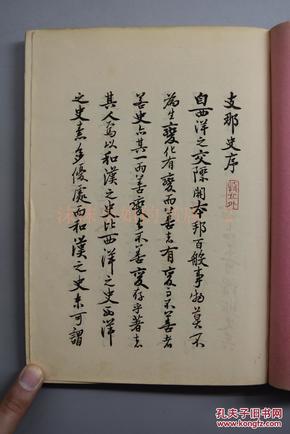 支那史序
自西洋之交際開本邦百般事物莫不
為生變化有變而善者有變而不善者
善史亦其一而善變與不善變存乎著者
其人焉以和漢之史比西洋之史西洋
之史素多優處而和漢之史未可謂
孔夫子旧书网